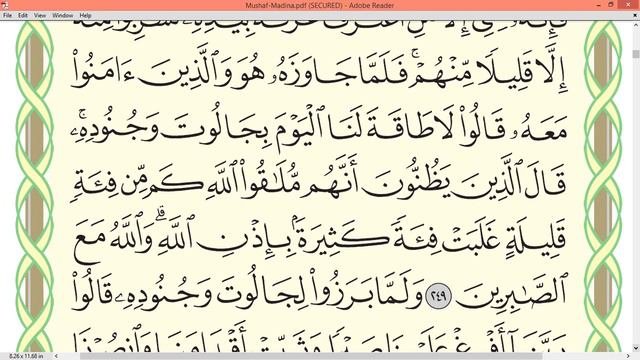 Mushaf-Madina.pdf (SECURED) - Adobe Reader
File Edit View Window Help
إِلَّا قَلِيلًا مِّنْهُمْ ۚ فَلَمَّا جَاوَزَهُۥ هُوَ وَٱلَّذِينَ ءَامَنُوا۟
مَعَهُۥ قَالُوا۟ لَا طَاقَةَ لَنَا ٱلْيَوْمَ بِجَالُوتَ وَجُنُودِهِۦ ۚ
قَالَ ٱلَّذِينَ يَظُنُّونَ أَنَّهُم مُّلَٰقُوا۟ ٱللَّهِ كَم مِّن فِئَةٍ
قَلِيلَةٍ غَلَبَتْ فِئَةً كَثِيرَةًۢ بِإِذْنِ ٱللَّهِ ۗ وَٱللَّهُ مَعَ
ٱلصَّٰبِرِينَ ٢٤٩ وَلَمَّا بَرَزُوا۟ لِجَالُوتَ وَجُنُودِهِۦ قَالُوا۟
8.26 x 11.68 in